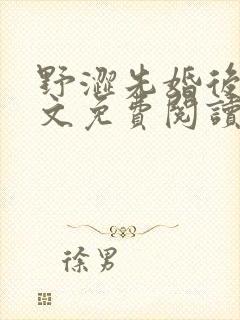 野澀先婚後
文免費閱讀
徐男